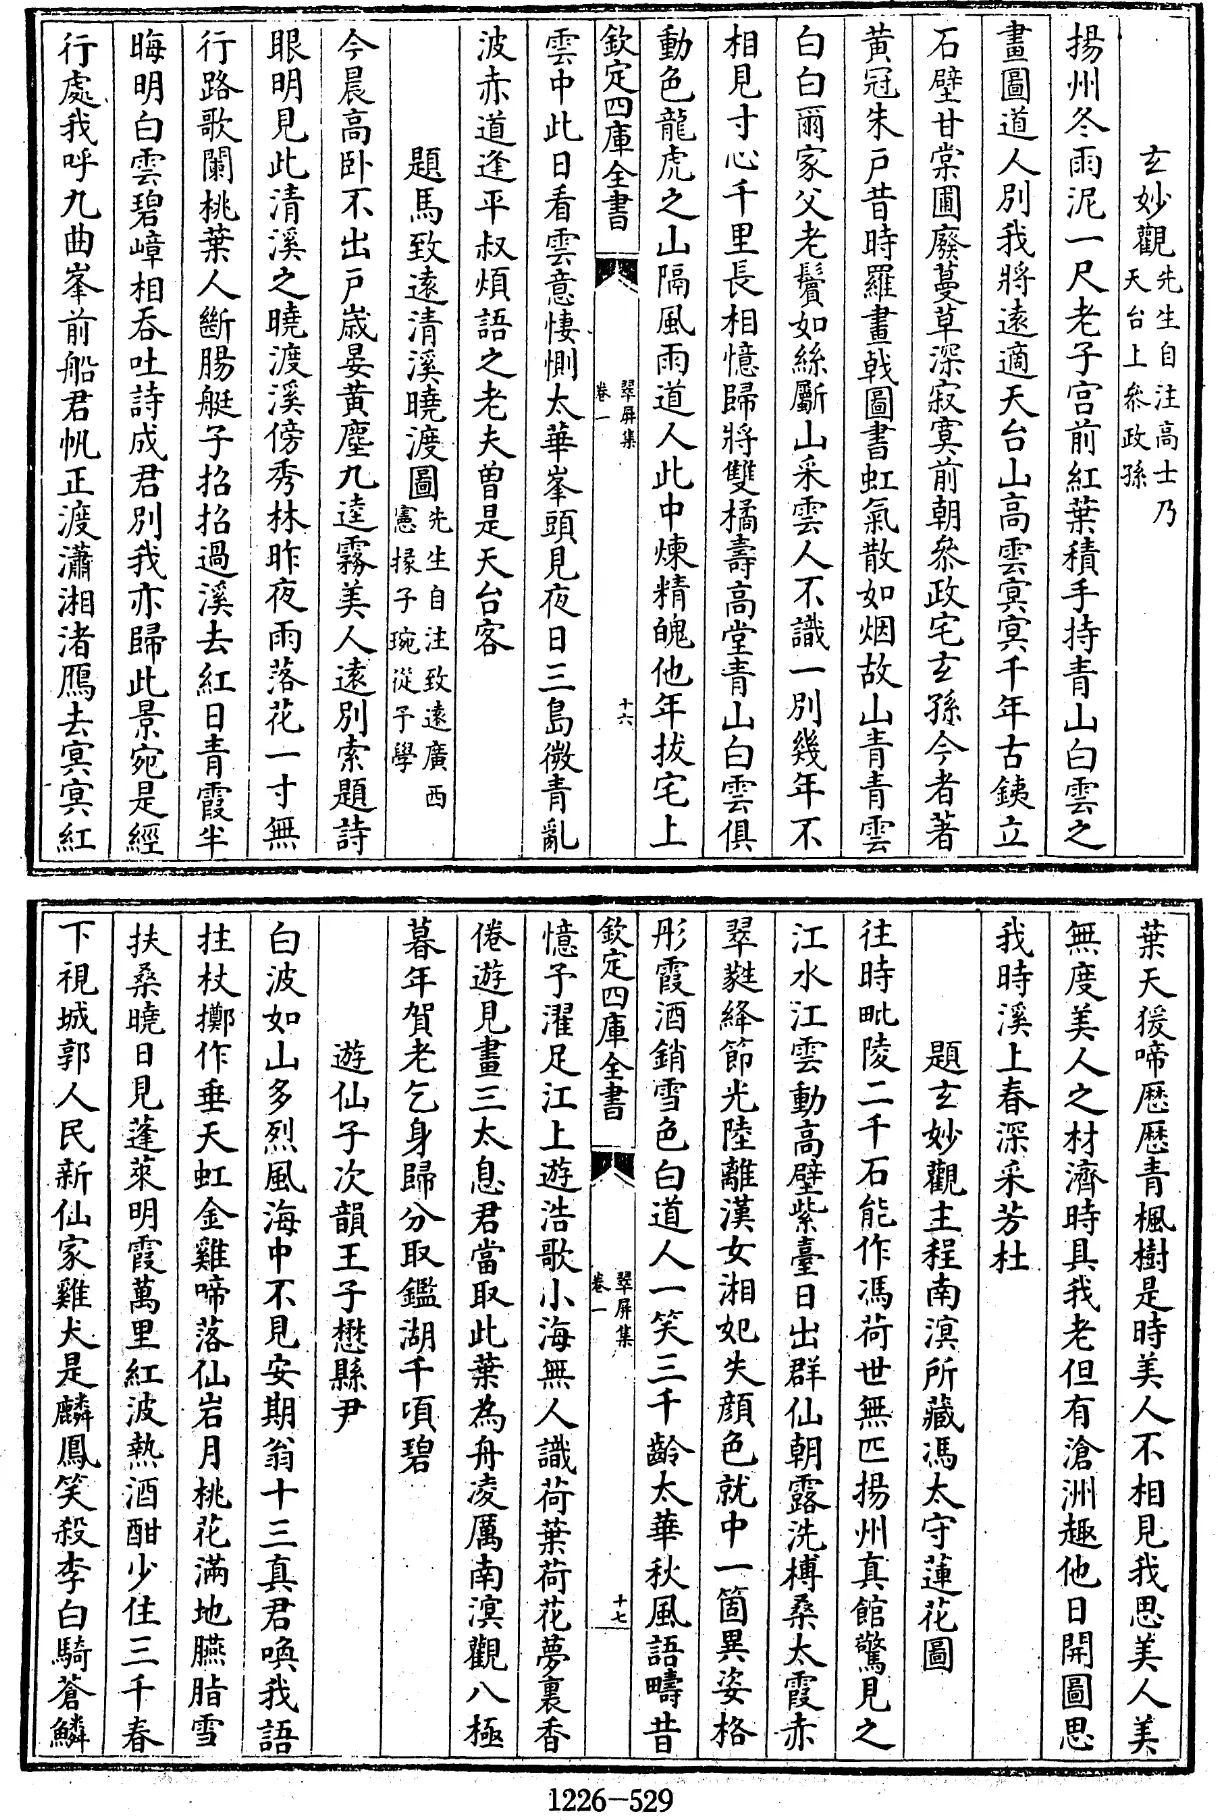 玄妙觀先生自注高士乃天台上參政孫
揚州冬雨泥一尺老子宫前紅葉積手持青山白雲之
畫圖道人別我將遠適天台山高雲冥冥千年古鐵立
石壁甘棠圃廢蔓草深寂寞前朝參政宅玄孫今者著
黄冠朱戸昔時羅畫戟圖書虹氣散如烟故山青青雲
白白爾家父老鬢如絲斸山采雲人不識一別幾年不
相見寸心千里長相憶歸將雙橘壽高堂青山白雲俱
動色龍虎之山隔風雨道人此中煉精魄他年拔宅上
欽定四庫全書
翠屏集
卷一
十六
雲中此日看雲意悽惻太華峯頭見夜日三島微青亂
波赤道逢平叔煩語之老夫曽是天台客
題馬致遠清溪曉渡圖先生自注致遠廣西憲掾子琬從予學
今晨高卧不出戸歳晏黄塵九逵霧美人遠別索題詩
眼明見此清溪之曉渡溪傍秀林昨夜雨落花一寸無
行路歌闌桃葉人斷腸艇子招招過溪去紅日青霞半
晦明白雲碧嶂相吞吐詩成君別我亦歸此景宛是經
行處我呼九曲峯前船君帆正渡瀟湘渚鴈去冥冥紅
葉天猨啼歴歴青楓樹是時美人不相見我思美人美
無度美人之材濟時具我老但有滄洲趣他日開圖思
我時溪上春深采芳杜
題玄妙觀主程南溟所藏馮太守蓮花圖
往時毗陵二千石能作馮荷世無匹揚州真館驚見之
江水江雲動高壁紫臺日出群仙朝露洗榑桑太霞赤
翠蕤絳節光陸離漢女湘妃失顔色就中一箇異姿格
彤霞酒銷雪色白道人一笑三千齡太華秋風語疇昔
欽定四庫全書
翠屏集
卷一
十七
憶子濯足江上遊浩歌小海無人識荷葉荷花夢裏香
倦遊見畫三太息君當取此葉為舟凌厲南溟觀八極
暮年賀老乞身歸分取鑑湖千頃碧
遊仙子次韻王子懋縣尹
白波如山多烈風海中不見安期翁十三真君喚我語
拄杖擲作垂天虹金雞啼落仙岩月桃花滿地臙脂雪
扶桑曉日見蓬萊明霞萬里紅波熱酒酣少住三千春
下視城郭人民新仙家雞犬是麟鳳笑殺李白騎蒼鱗
1226-529